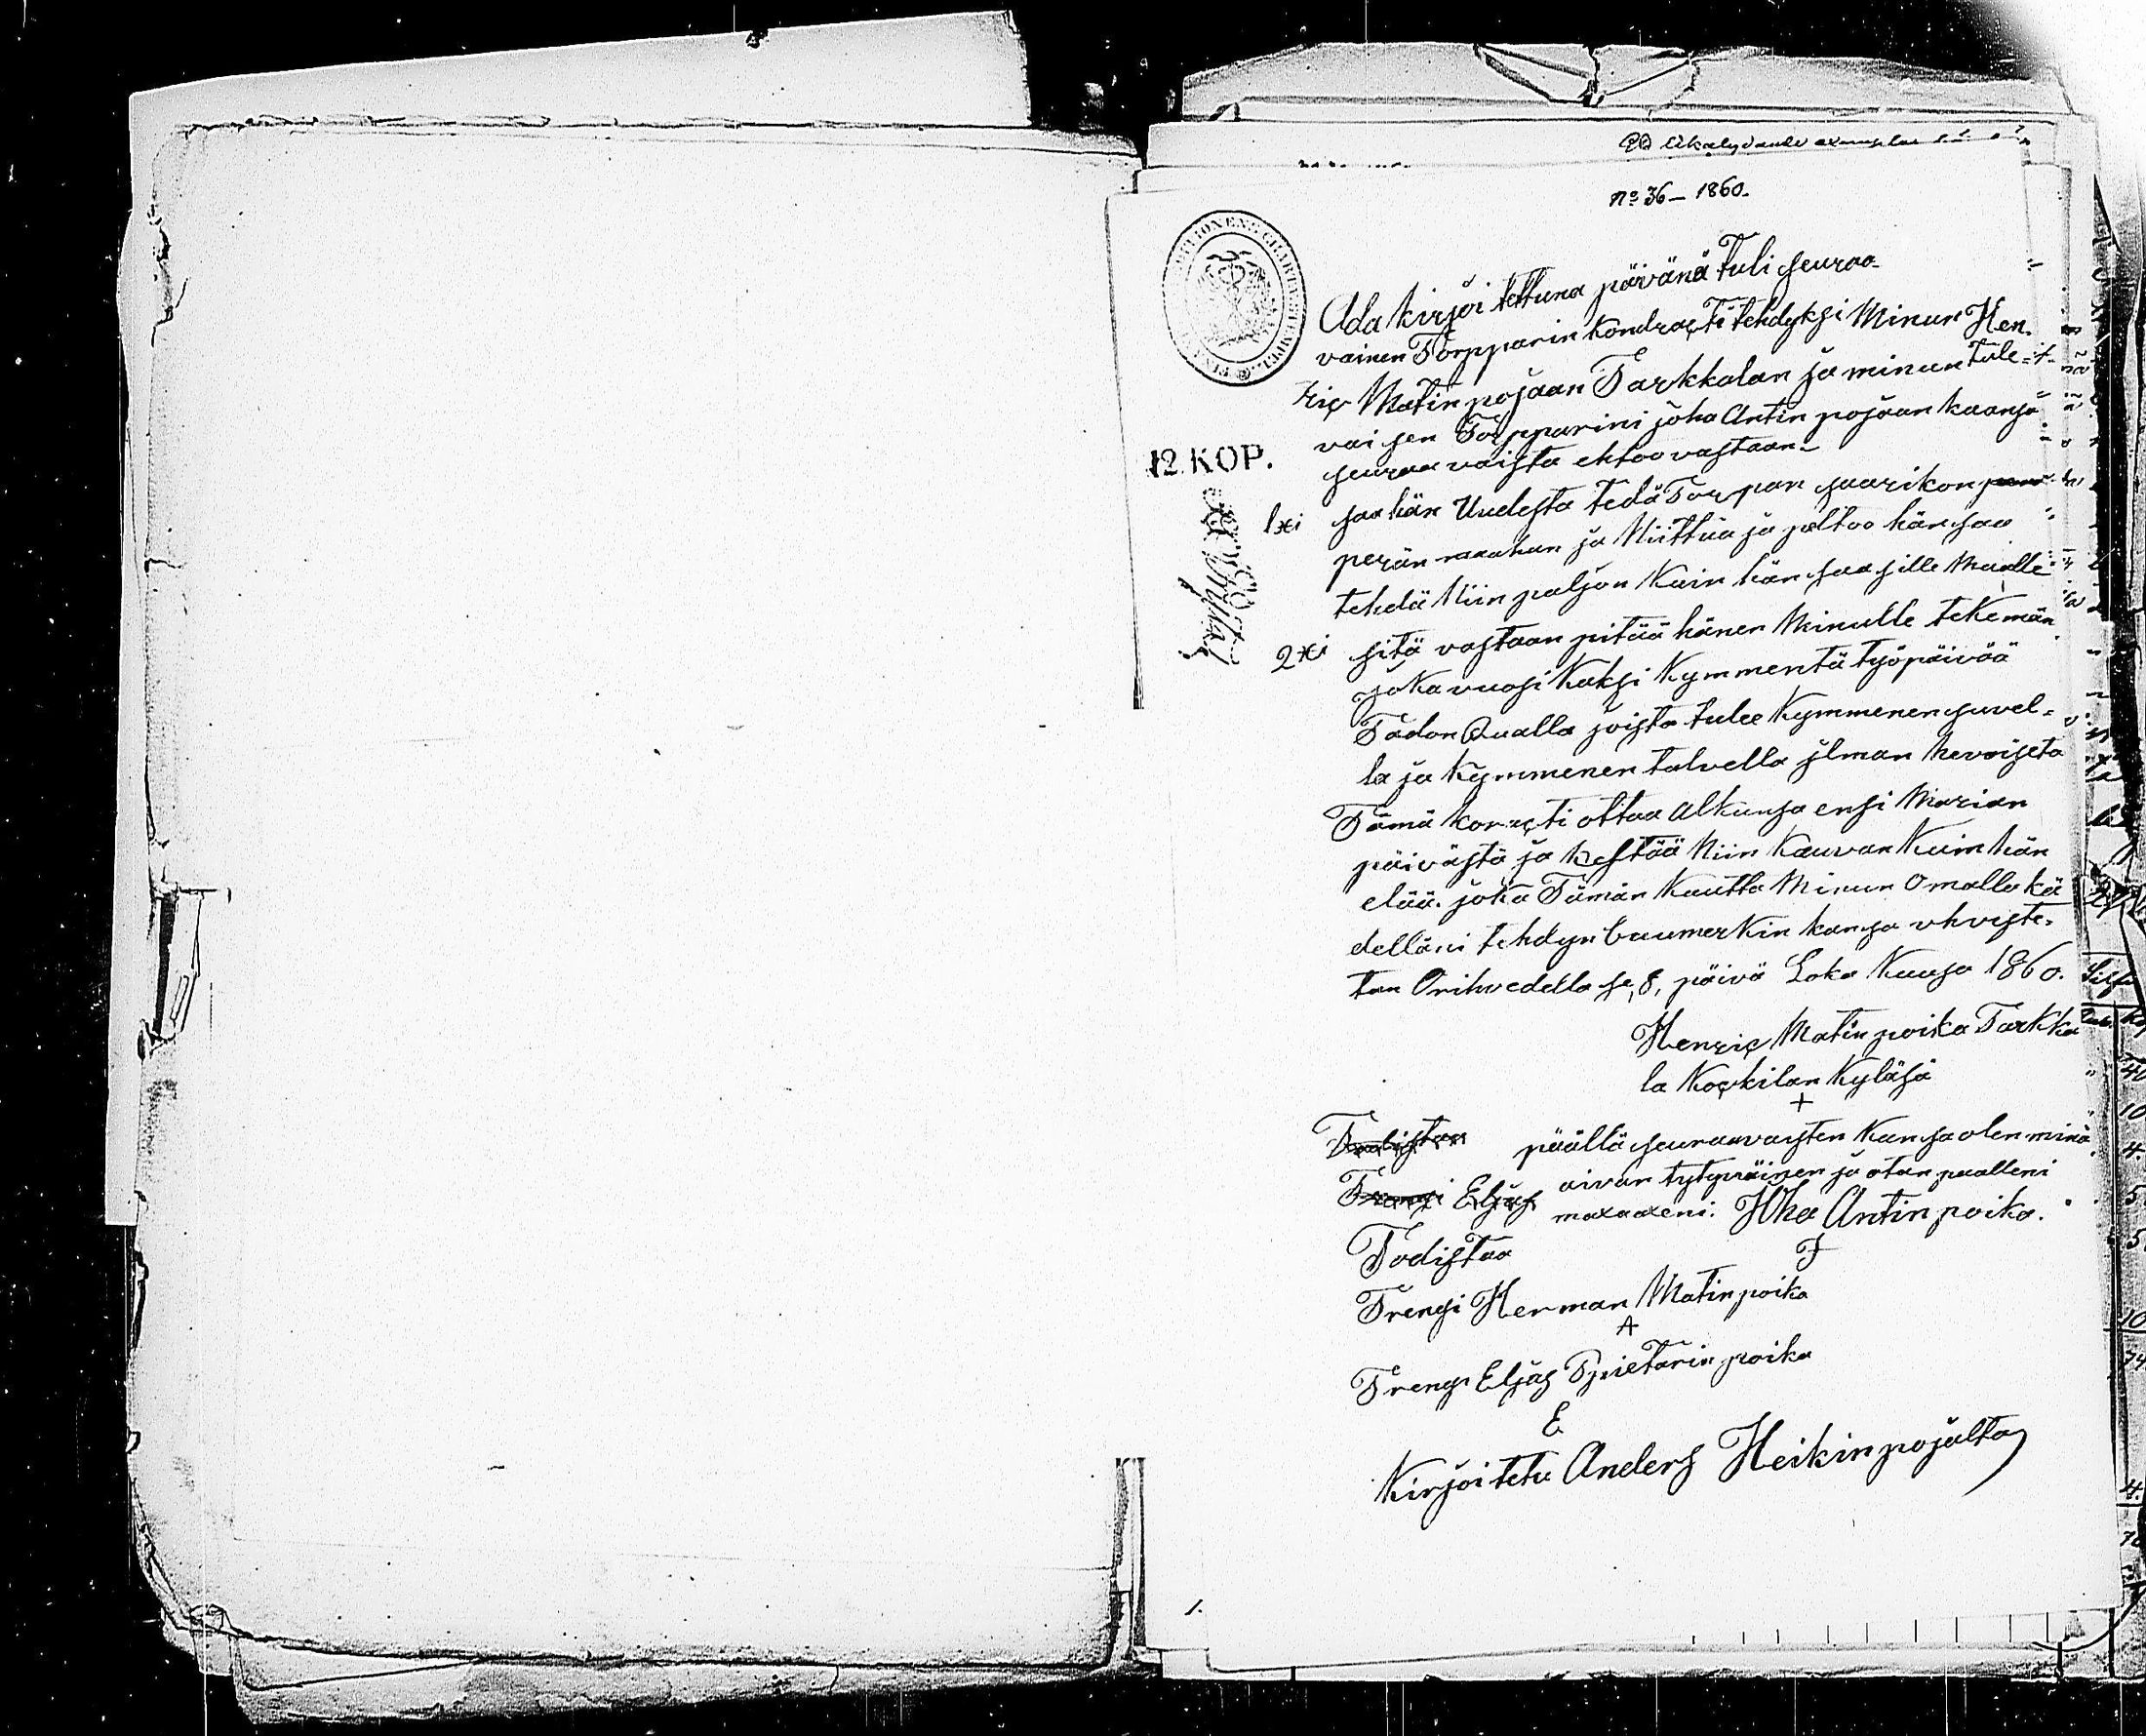 No 36 – 1860.
Ala kirjoi tettuna päivänä Tuli seuraa-
vainen Torpparin kondracti tehdyksi Minun Hen-
ric Matin pojaan Tarkkalan ja minun tule-
vaisen Torpparini joha Antin pojaan kaansa
seuraavaista ehtoo vastaan-
12 KOP.
1xi saa hän Uudesta tedä Torpan saarikon
perän maahan ja Niittua ja peltoo hän saa
tehdä Niin paljon Kuin hän saa sille Maalle
2xi sitä vastaan pitää hänen Minulle tekemän
joka vuosi Kaksi Kymmentä työpäivää
Talon Rualla joista tulee Kymmenen suvel=
la ja Kymmenen talvella jlman hevoiseta
Tämä konracti ottaa alkunsa ensi Marian
päivästä ja kestää Niin Kauvan Kuin hän
elää. joka Tämän Kautta Minun Omalla kä
delläni tehdyn buumerkin kansa vhviste-
tan Orihvedella se, 8, päivä Loka Kuusa 1860.
Henric Matin poika Tarkka
la Kockilan Kyläsä
+
Todistan päällä seuraavaisten Kansa olen minä
Trengi Eljas aivan tytyväinen ja otan paalleni
maxaxeni. Joha Antin poika.
Todistaa
Trengi Herman Matin poika
A
Trengi Eljas Pietarin poika
E
Kirjoitetu Anders Heikin pojalta